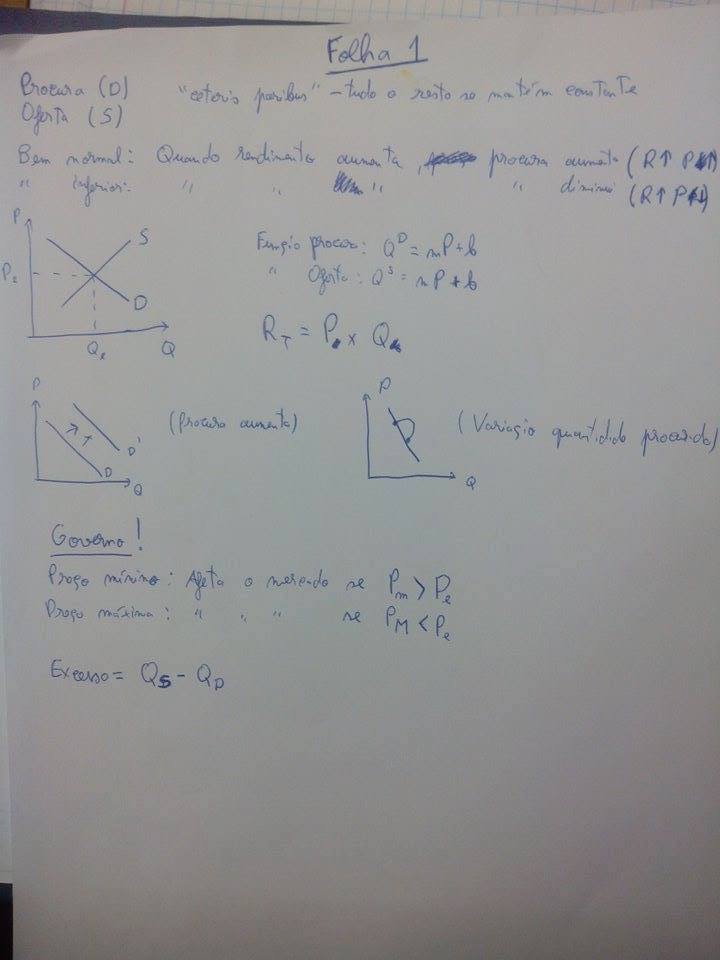 Folha 1
Procura (D) "ceteris paribus" - tudo o resto se mantém constante
Oferta (S)
Bem normal: Quando rendimento aumenta, procura aumenta (R↑ P↑)
" inferior: " " " " diminui (R↑ P↓)
P
S
Pe
D
Qe Q
Função procura: Q^D = mP + b
" Oferta: Q^S = mP + b
R_T = P x Q
P
D'
D
Q
(Procura aumenta)
P
Q
(Variação quantidade procurada)
Governo!
Preço mínimo: Afeta o mercado se Pm > Pe
Preço máximo: " " " se PM < Pe
Excesso = QS - QD